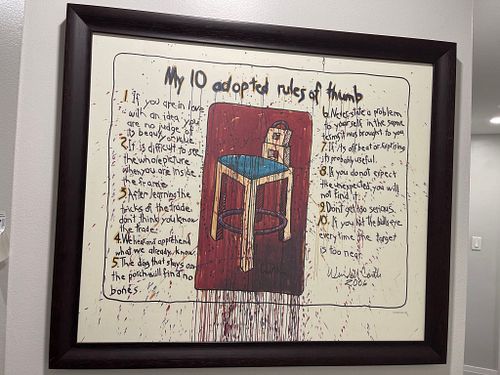 My 10 adopted rules of thumb
1 If you are in love
with an idea, you
are no judge of
its beauty or value.
2. It is difficult to see
the whole picture
when you are inside
the frame.
3. After learning the
tricks of the trade
don't think you know
the trade.
4. We hear and apprehend
what we already know.
5. The dog that stays on
the porch will find no
bones.
6. Never state a problem
to yourself in the same
terms it was brought to you
7. If its offbeat or surprising
its probably useful.
8. If you do not expect
the unexpected, you will
not find it.
9. Don't get too serious.
10. If you hit the bullseye
every time the target
is too near.
2006